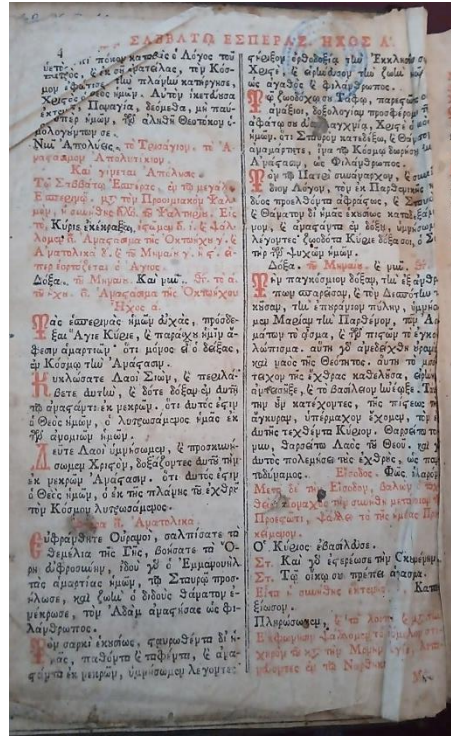 ΣΑΒΒΑΤΩ ΕΣΠΕΡΑΣ. ΗΧΟΣ Α΄.
4
ὁ Λόγος τοῦ
ϗ ἐκ σοῦ ἀνατείλας, τὸν Κόσ-
μον ἐφώτισε πλάνην κατήργησε,
Χριστὸς ὁ Θεὸς ἡμῶν. Αὐτὸν ἱκετεύουσα
ἐκτενῶς, Παναγία, δεόμεθα, μὴ παύ-
ὑπὲρ ἡμῶν, τῶν ἀληθῆ Θεοτόκον ὁ-
μολογούντων σε.
Νῦν Ἀπολύεις. τὸ Τρισάγιον. τὸ Ἀ-
ναστάσιμον Ἀπολυτίκιον.
Καὶ γίνεται Ἀπόλυσις.
Τῷ Σαββάτῳ Ἑσπέρας, ἐν τῷ μεγάλῳ
Ἑσπερινῷ, μετὰ τὸν Προοιμιακὸν Ψαλ-
μὸν, ἡ συνήθης τοῦ Ψαλτηρίου. Εἰς
τὸ, Κύριε ἐκέκραξα, ἱστῶμεν ϗ ψάλ-
λομεν Ἀναστάσιμα τῆς Ὀκτωήχου γ΄. ϗ
Ἀνατολικὰ δ΄. ϗ τοῦ Μηναίου
περ ἑορτάζεται ὁ Ἅγιος.
Δόξα. τοῦ Μηναίου. Καὶ νῦν. τὸ α΄.
τοῦ ἤχου. Ἀναστάσιμα τῆς Ὀκτωήχου
Ἦχος α΄.
Τὰς ἑσπερινὰς ἡμῶν εὐχὰς, πρόσδε-
ξαι Ἅγιε Κύριε, ϗ παράσχου ἡμῖν ἄ-
φεσιν ἁμαρτιῶν· ὅτι μόνος εἶ ὁ δείξας,
ἐν Κόσμῳ τὴν Ἀνάστασιν.
Κυκλώσατε Λαοὶ Σιὼν, ϗ περιλά-
βετε αὐτὴν, ϗ δότε δόξαν ἐν αὐτῇ
τῷ ἀναστάντι ἐκ νεκρῶν. ὅτι αὐτός ἐστιν
ὁ Θεὸς ἡμῶν, ὁ λυτρωσάμενος ἡμᾶς ἐκ
τῶν ἀνομιῶν ἡμῶν.
Δεῦτε Λαοὶ ὑμνήσωμεν, ϗ προσκυνή-
σωμεν Χριστὸν, δοξάζοντες αὐτοῦ τὴν
ἐκ νεκρῶν Ἀνάστασιν. ὅτι αὐτός ἐστιν
ὁ Θεὸς ἡμῶν, ὁ ἐκ τῆς πλάνης τοῦ ἐχθροῦ
τὸν Κόσμον λυτρωσάμενος.
Ἀνατολικά.
Εὐφράνθητε Οὐρανοὶ, σαλπίσατε τὰ
θεμέλια τῆς Γῆς, βοήσατε τὰ Ὄ-
ρη εὐφροσύνην, ἰδοὺ γὰρ ὁ Ἐμμανουὴλ
τὰς ἁμαρτίας ἡμῶν, τῷ Σταυρῷ προσ-
ήλωσε, καὶ ζωὴν ὁ διδοὺς θάνατον ἐ-
νέκρωσε, τὸν Ἀδὰμ ἀναστήσας ὡς φι-
λάνθρωπος.
Τὸν σαρκὶ ἑκουσίως, σταυρωθέντα δι' ἡ-
μᾶς, παθόντα ϗ ταφέντα, ϗ ἀνα-
στάντα ἐκ νεκρῶν, ὑμνήσωμεν λέγοντες
στήριξον ὀρθοδοξίᾳ τὴν Ἐκκλησίαν
Χριστὲ, ϗ εἰρήνευσον τὴν ζωὴν ἡμῶν
ὡς ἀγαθὸς ϗ φιλάνθρωπος.
Τῷ ζωοδόχῳ σου Τάφῳ, παρεστῶτες
ἀνάξιοι, δοξολογίαν προσφέρομεν
ἀφάτῳ σου εὐσπλαγχνίᾳ, Χριστὲ ὁ Θεὸς
ἡμῶν. ὅτι Σταυρὸν κατεδέξω, ϗ θάνατον
ἀναμάρτητε, ἵνα τῷ Κόσμῳ δωρήσῃ
Ἀνάστασιν, ὡς Φιλάνθρωπος.
Τὸν τῷ Πατρὶ συνάναρχον, ϗ συναΐ-
διον Λόγον, τὸν ἐκ Παρθενικῆς
δύος προελθόντα ἀφράστως, ϗ Σταυρὸν
ϗ Θάνατον δι' ἡμᾶς ἑκουσίως καταδεξά-
μενον, ϗ ἀναστάντα ἐν δόξῃ, ὑμνήσωμεν
λέγοντες· ζωοδότα Κύριε δόξα σοι, ὁ Σω-
τὴρ τῶν ψυχῶν ἡμῶν.
Δόξα. τοῦ Μηναίου. ϗ νῦν.
Τὴν παγκόσμιον δόξαν, τὴν ἐξ ἀνθρώ-
πων σπαρεῖσαν, ϗ τὸν Δεσπότην
κοῦσαν, τὴν ἐπουράνιον πύλην, ὑμνήσω-
μεν Μαρίαν τὴν Παρθένον, τῶν Ἀσω-
μάτων τὸ ᾆσμα, ϗ τῶν πιστῶν τὸ ἐγκαλ-
λώπισμα. αὕτη γὰρ ἀνεδείχθη οὐρανὸς
καὶ ναὸς τῆς Θεότητος. αὕτη τὸ μεσό-
τοιχον τῆς ἔχθρας καθελοῦσα, εἰρήνην
ἀντεισῆξε, ϗ τὸ βασίλειον ἠνέῳξε. Ταύ-
την οὖν κατέχοντες, τῆς πίστεως τὴν
ἄγκυραν, ὑπέρμαχον ἔχομεν, τὸν ἐξ
αὐτῆς τεχθέντα Κύριον. Θαρσείτω τοί-
νυν, θαρσείτω Λαὸς τοῦ Θεοῦ. καὶ γὰρ
αὐτὸς πολεμήσει τοὺς ἐχθροὺς, ὡς παν-
τοδύναμος. Εἴσοδος. Φῶς ἱλαρόν.
Μετὰ δὲ τὴν Εἴσοδον,
Προεστῶτι, ψάλλει τὸ τῆς ἡμέρας Προ-
κείμενον.
Ὁ Κύριος ἐβασίλευσε.
Στ. Καὶ γὰρ ἐστερέωσε τὴν Οἰκουμένην.
Στ. Τῷ οἴκῳ σου πρέπει ἁγίασμα.
Εἶτα ἡ συνήθης ἐκτενής. Κατα-
ξίωσον.
Πληρώσωμεν,